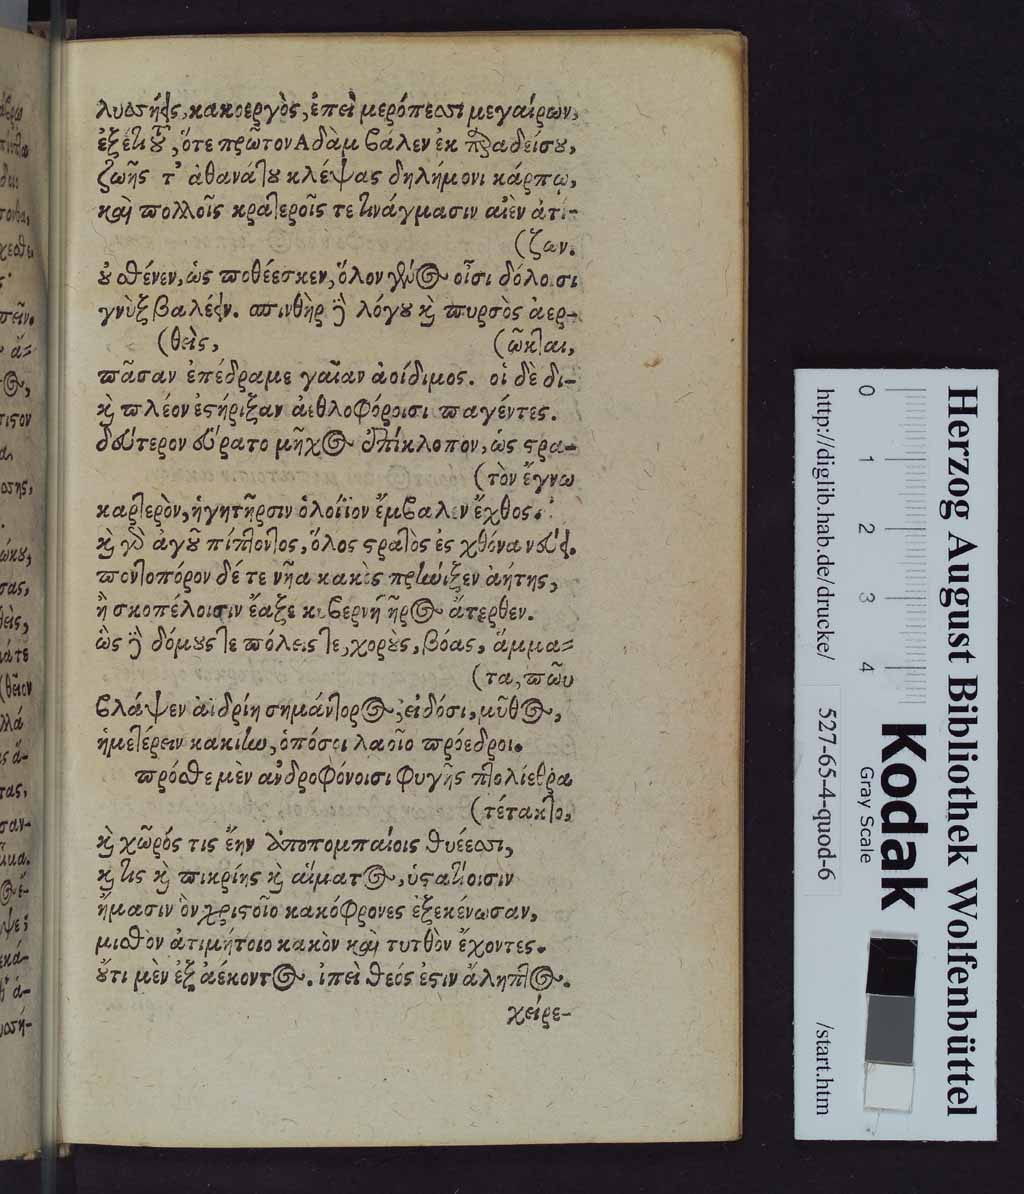 λυσσήεις, κακοεργὸς, ἐπεὶ μερόπεσσι μεγαίρων,
ἐξέτι τοῦ, ὅτε πρῶτον Αδὰμ βάλεν ἐκ παραδείσου,
ζωῆς τ' ἀθανάτου κλέψας δηλήμονι κάρπῳ,
καὶ πολλοῖς κρατεροῖς τε τινάγμασιν αἰὲν ἀτί-
(ζων.
οὐ σθένεν, ὡς ποθέεσκεν, ὅλον γένος οἷσι δόλοισι
γνὺξ βαλέειν. σπινθὴρ γὰρ λόγου καὶ πυρσὸς ἀερ-
(θεὶς, (ῶκται,
πᾶσαν ἐπέδραμε γαῖαν ἀοίδιμος. οἱ δὲ δι-
καὶ πλέον ἐστήριξαν ἀεθλοφόροισι παγέντες.
δεύτερον εὕρατο μῆχος ἐπίκλοπον, ὡς στρα-
(τὸν ἔγνω
καρτερὸν, ἡγητῆρσιν ὁλοίϊον ἔμβαλεν ἔχθος.
καὶ γὰρ ἀγοῦ πίπτοντος, ὅλος στρατὸς ἐς χθόνα νεύει.
ποντοπόρον δέ τε νῆα κακὸς πρώϊξεν ἀήτης,
ἢ σκοπέλοισιν ἔαξε κυβερνητῆρος ἄτερθεν.
ὣς γὰρ δόμους τε πόλεις τε, χοροὺς, βόας, ἅμμα-
(τα, πῶυ
βλάψεν ἀϊδρίη σημάντορος, εἰδόσι, μῦθος,
ἡμετέρειν κακίην, ὁπόσοι λαοῖο πρόεδροι.
πρόσθε μὲν ἀνδροφόνοισι φυγῆς πτολίεθρα
(τέτακτο,
καὶ χῶρός τις ἔην ἀποπομπαίοις θυέεσσι,
καί τις καὶ πικρίης καὶ αἵματος, ὑστατίοισιν
ἤμασιν ὃν χριστοῖο κακόφρονες ἐξεκένωσαν,
μισθὸν ἀτιμήτοιο κακὸν καὶ τυτθὸν ἔχοντες.
οὔτι μὲν ἐξ ἀέκοντος. ἐπεὶ θεός ἐστιν ἄληπτος.
χείρε-
Herzog August Bibliothek Wolfenbüttel
Kodak
Gray Scale
0 1 2 3 4
http://diglib.hab.de/drucke/ 527-65-4-quod-6 /start.htm